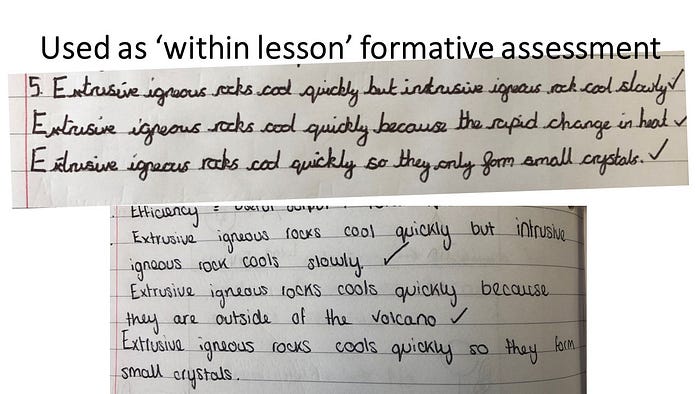 Used as ‘within lesson’ formative assessment
5. Extrusive igneous rocks cool quickly but intrusive igneous rock cool slowly ✓
Extrusive igneous rocks cool quickly because the rapid change in heat ✓
Extrusive igneous rocks cool quickly so they only form small crystals. ✓
Efficiency = useful output
Extrusive igneous rocks cool quickly but intrusive
igneous rock cools slowly. ✓
Extrusive igneous rocks cools quickly because
they are outside of the volcano ✓
Extrusive igneous rocks cools quickly so they form
small crystals.